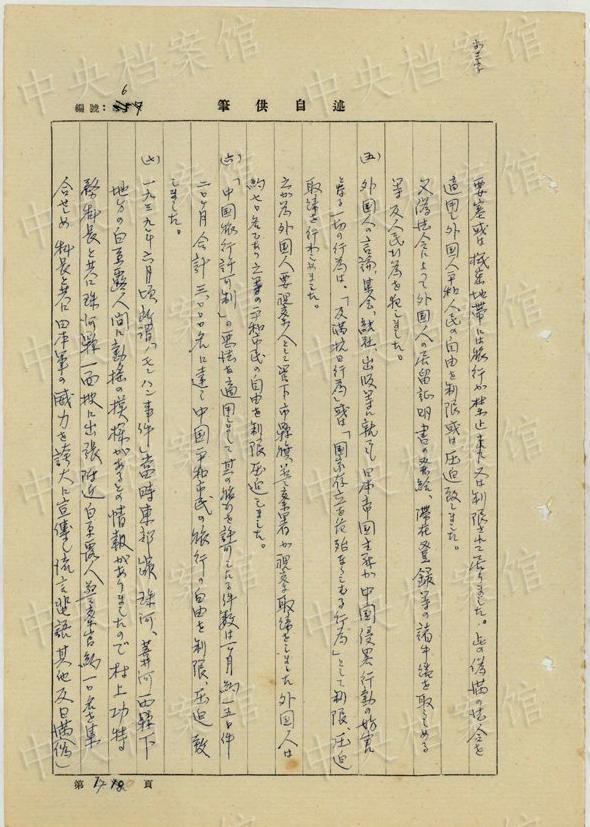 述自供筆
編號：6
要塞或は国境地帯には旅行が禁止され又は制限されて居りました。此の偽満の法令を
適用し外国人平和人民の自由を制限或は圧迫致しました。
又偽法令によって外国人の居留証明書の発給、滞在登録等の諸手続を取らしめる
等平和人民を犯しました。
(五) 外国人の言論、集会、結社、出版等に就ても日本帝国主義が中国侵略行動の妨害
となる一切の行為は、「反満抗日行為」或は「国家存立を危殆ならしむる行為」として制限圧迫
取締を行わしめました。
立が為外国人要視察人として管下市県旗並警察署が視察取締をしました外国人は
約七〇名であり之等の平和市民の自由を制限圧迫しました。
(六)「中国旅行許可制」の悪法を適用しまして其の旅行を許可したる件数は一ヶ月約一五〇件
二〇ヶ月合計三、〇〇〇名に達し中国平和市民の旅行の自由を制限、圧迫致
しました。
(七) 一九三九年六月頃所謂「ノモンハン事件」当時東部線珠河、葦河両県下
地方の白系露人間に動揺の模様があるとの情報がありましたので村上功特
務科長と共に珠河県一面坡に出張附近白系露人並警察官約一〇名を集
合せしめ科長と共に日本軍の威力を誇大に宣傳し流言蜚語其他反日満（偽）
第 18 頁
中央档案馆